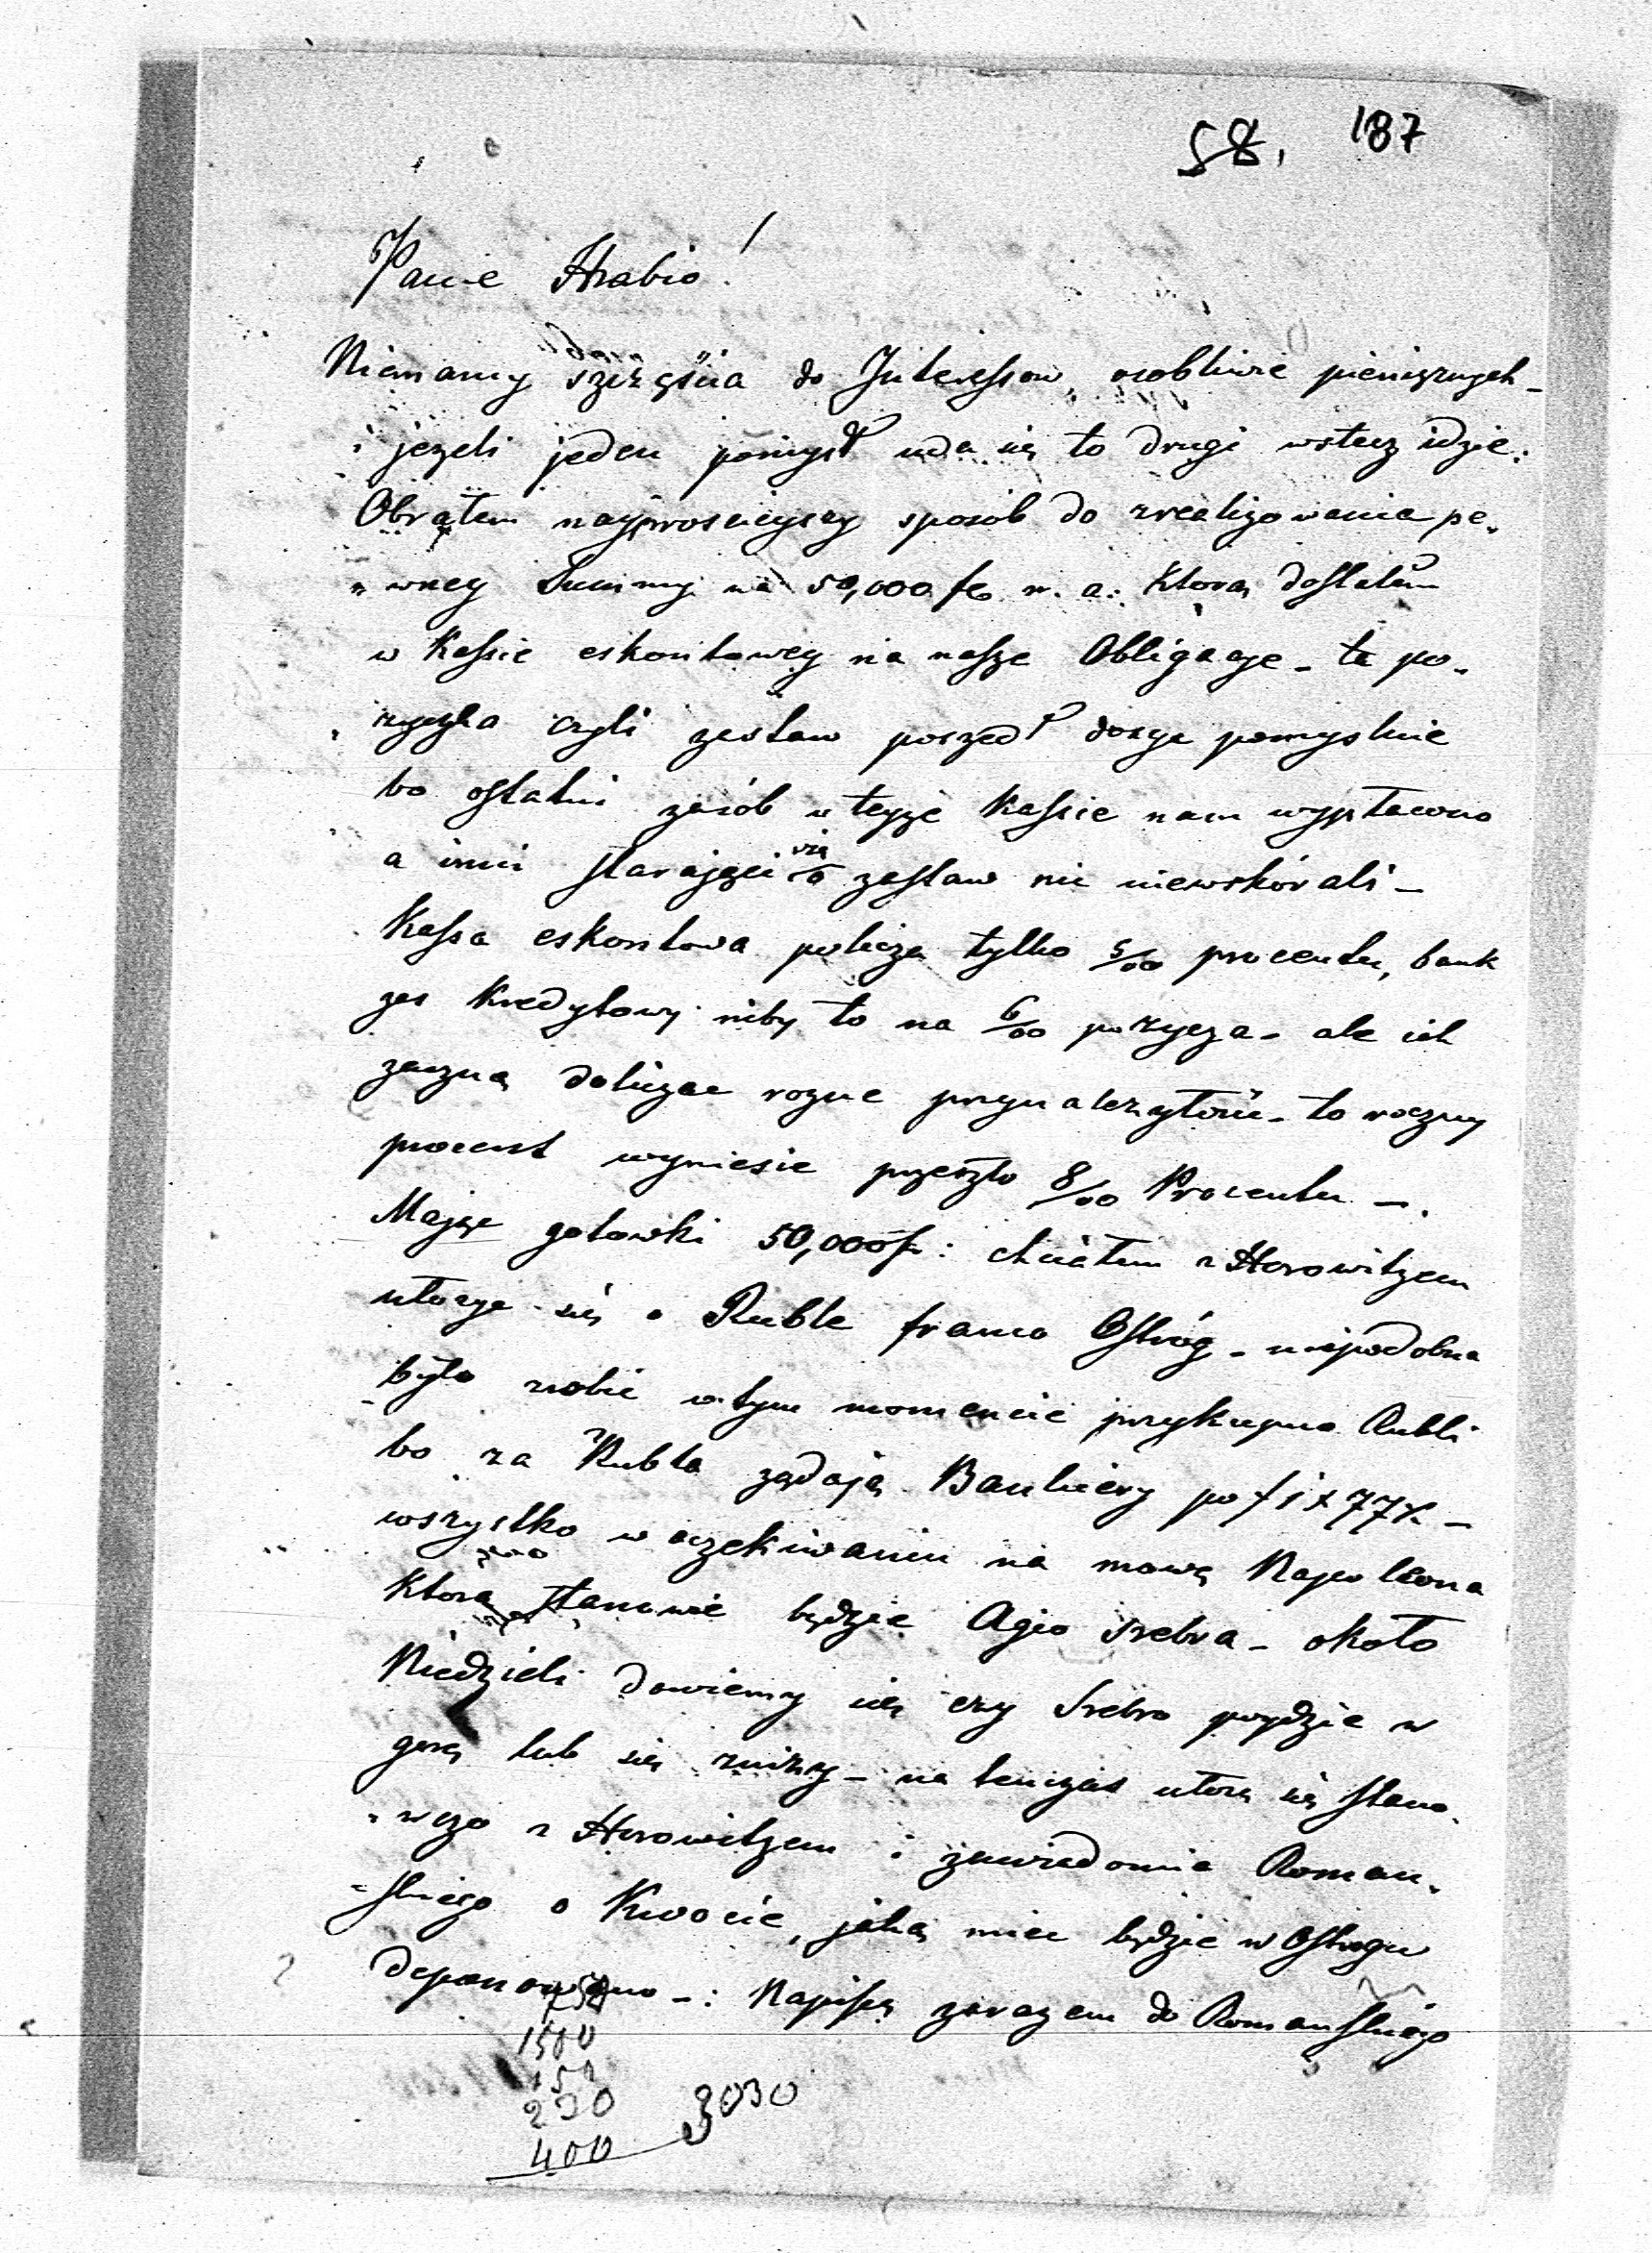 58. 187
Panie Hrabio!
Niemamy szczęścia do Interessow, osobliwie pieniężnych –
i jezeli jeden pomysł uda się to drugi wstecz idzie.
Obrałem nayprosciejszy sposób do zrealizowania pe„
„wney Summy na 50,000 fl w. a: ktorą dostałem
w Kassie eskontowey na nasze Obligacye – ta po„
„zyczka czyli zastaw poszedł dosyc pomyslnie
bo ostatni zasób w teyze Kassie nam wypłacono
a inni starający się o zastaw nic niewskórali –
Kassa eskontowa policza tylko 5/00 procentu, bank
zas Kredytowy niby to na 6/00 pozycza – ale jak
zaczną doliczac rozne przynalezytości – to roczny
procent wyniesie przeszło 8/00 Procentu –.
Mając gotowki 50,000 f: chciałem z Horowitzem
ułozyc się o Ruble franco Ostróg – niepodobna
było zrobic w tym momencie przykupna Rubli
bo za Rubla ządają Bankiery po f 1 x 77 –
wszystko w oczekiwaniu na mowę Napoleona
Która stanowic będzie Agio srebra – około
Niedzieli dowiemy się czy Srebro poydzie w
gorę lub się znizy – na tenczas ułozę się stano„
„wczo z Horowitzem i zawiadomie Roman„
„skiego o Kwocie, jaką miec będzie w Ostrogu
deponowano –: Napiszę zarazem do Romanskiego
750
1500
150
230
400 3030